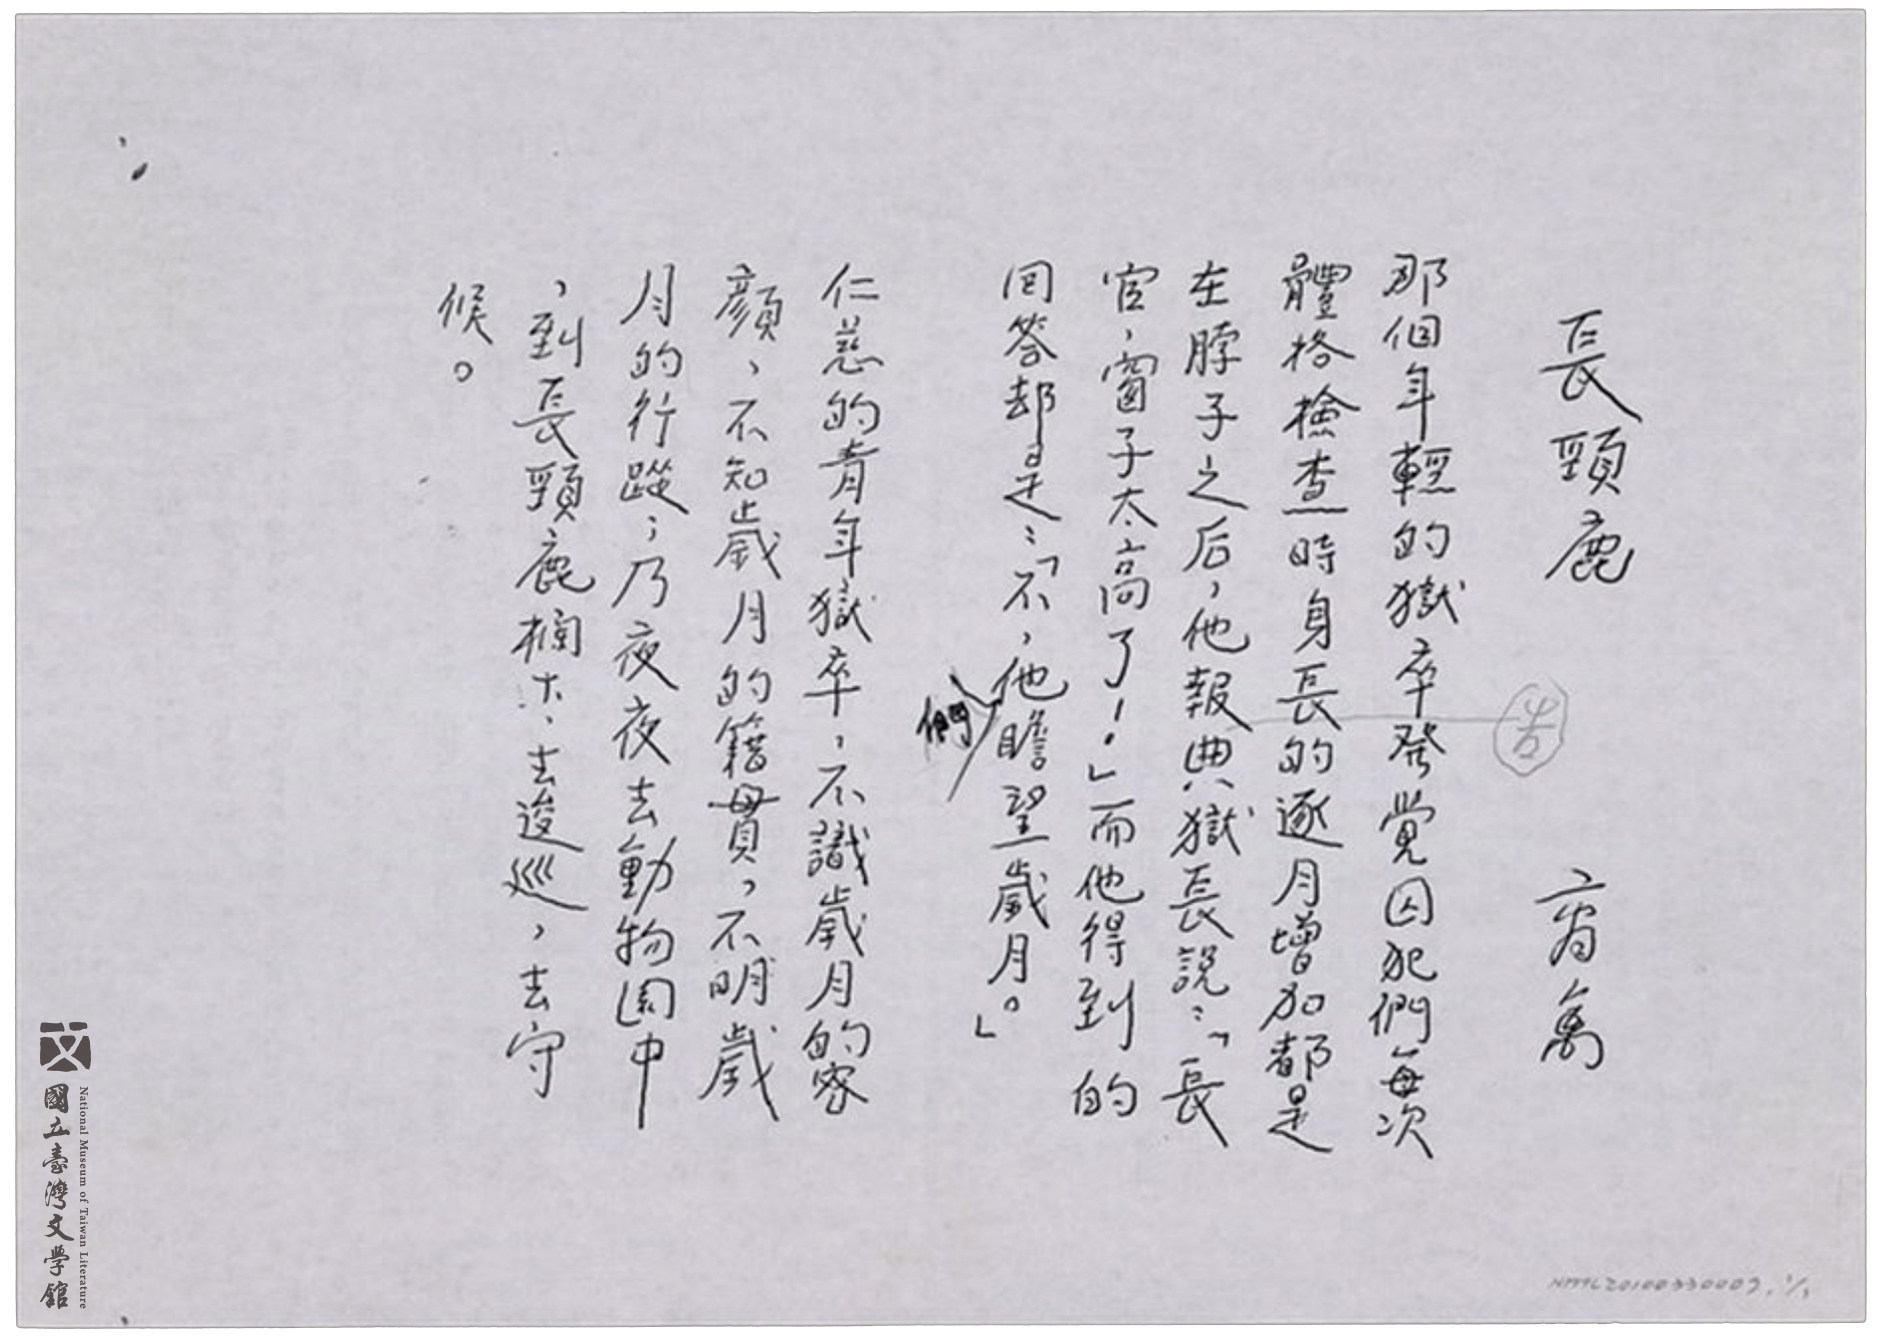 長頸鹿　商禽
那個年輕的獄卒發覚囚犯們每次
體格檢查時身長的逐月增加都是
在脖子之后，他報典獄長說：「長
告
官，窗子太高了！」而他得到的
回答却是：「不，他瞻望歲月。」
們
仁慈的青年獄卒，不識歲月的容
顏，不知歲月的籍貫，不明歲
月的行踪；乃夜夜去動物園中
，到長頸鹿欄下、去逡巡，去守
候。
國立臺灣文學館
National Museum of Taiwan Literature
NMTL20100330007.1/1